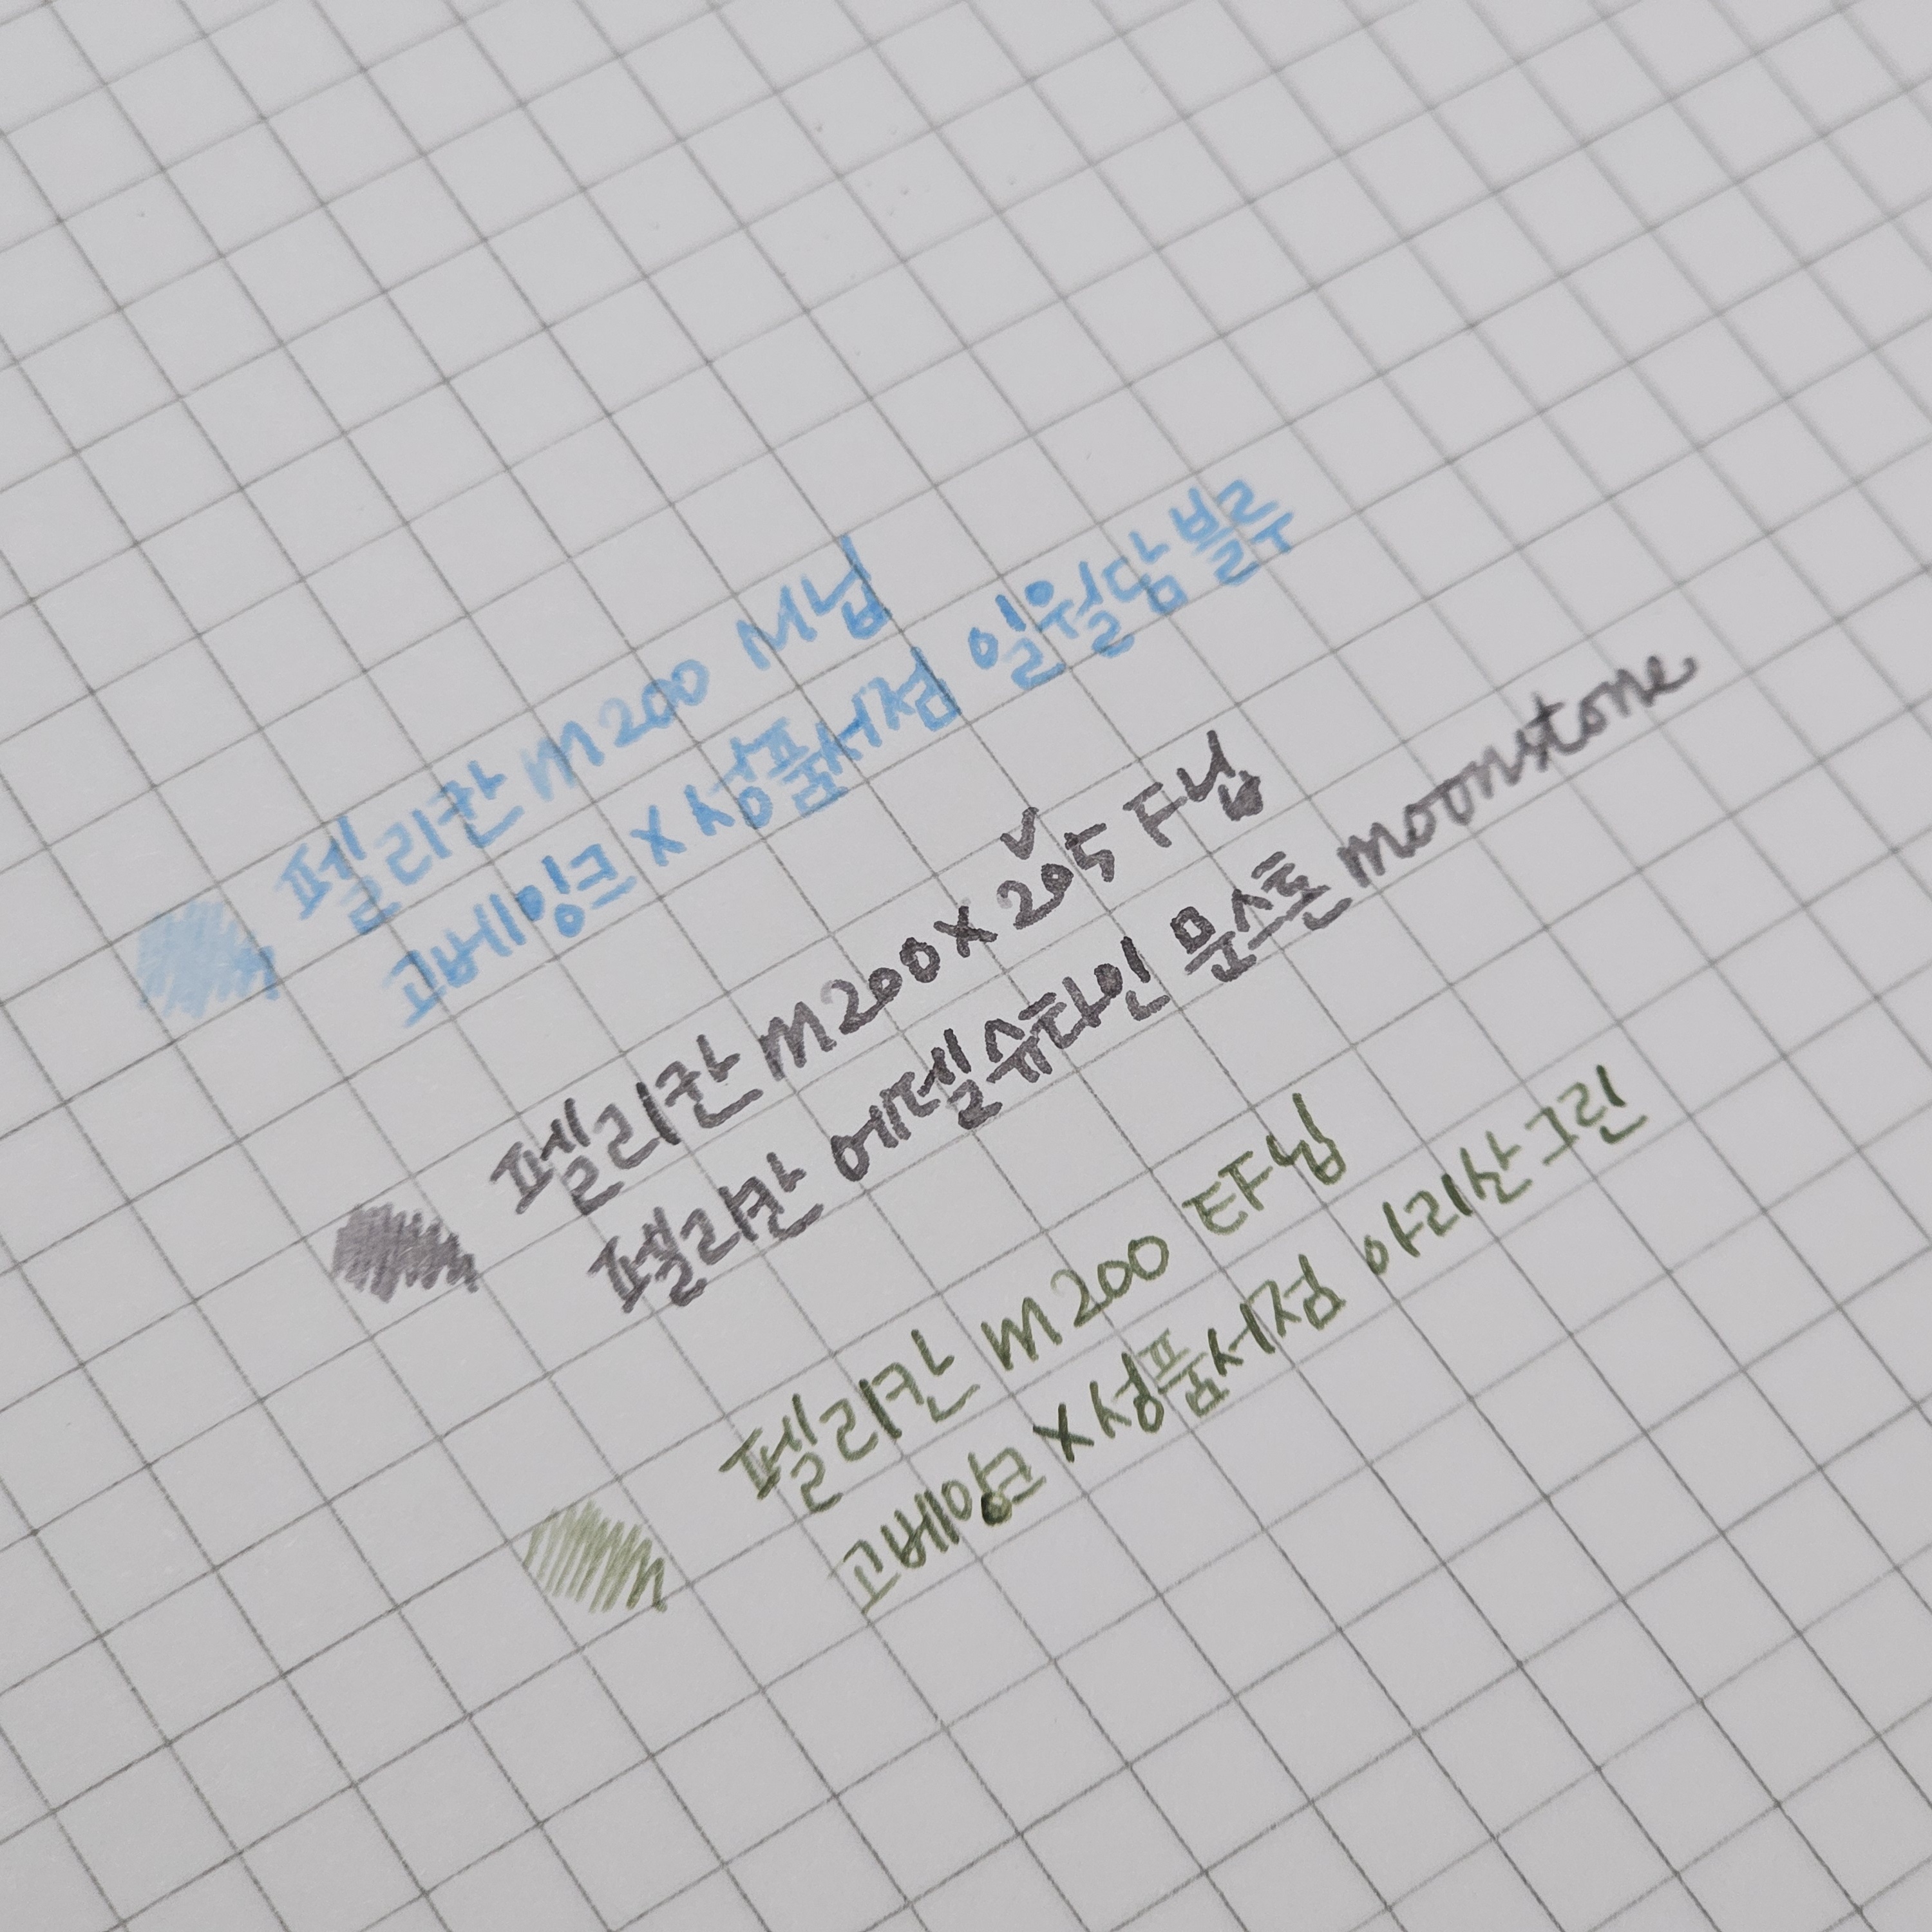 펠리칸 m200 M닙
고베잉크 x 성품서점 일월담블루
펠리칸 m200 x 205 F닙
펠리칸 에델슈타인 문스톤 moonstone
펠리칸 m200 EF닙
고베잉크 x 성품서점 아리산그린